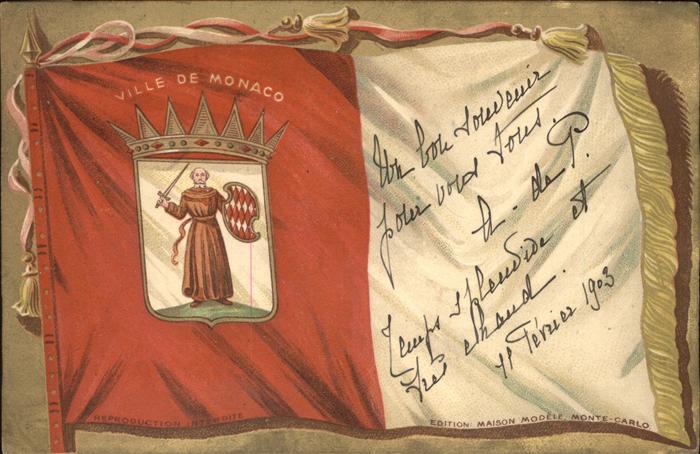 VILLE DE MONACO
Un bon souvenir
pour vous tous.
A. de P.
Temps splendide et
très chaud.
1r Février 1903
REPRODUCTION INTERDITE
EDITION: MAISON MODÈLE, MONTE-CARLO